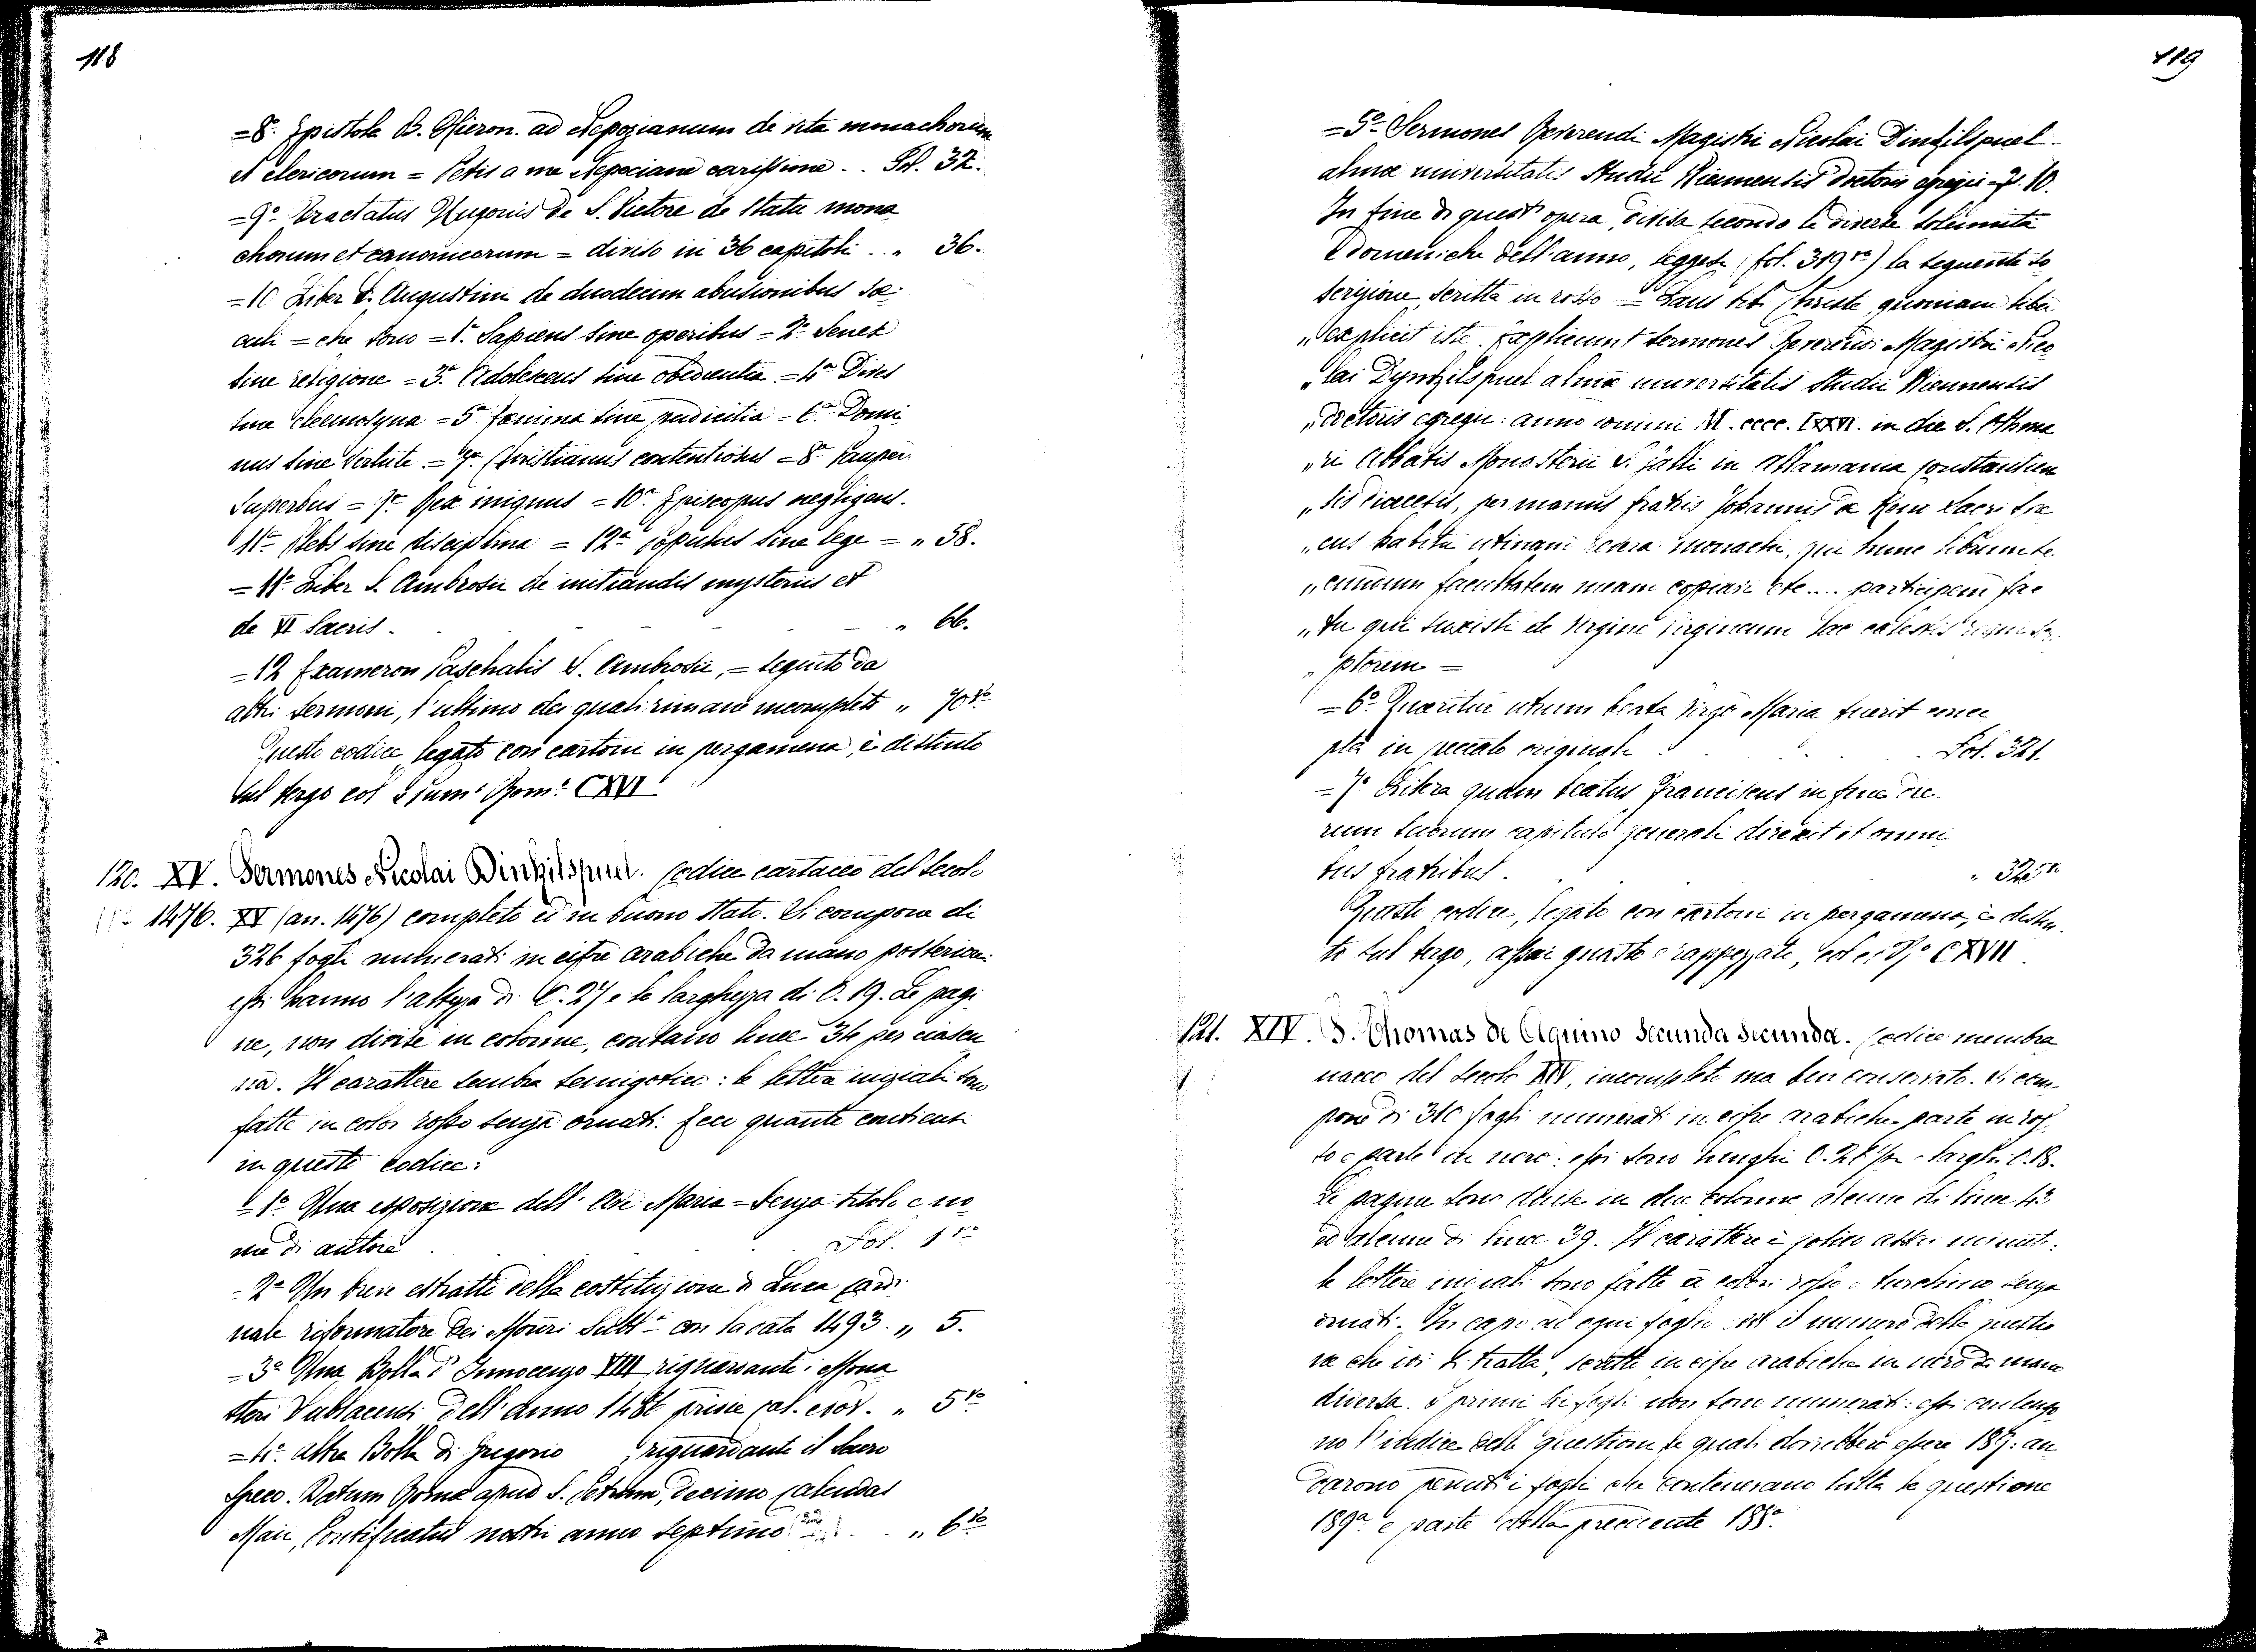 118
=8.° Epistola B. Hieron. ad Nepozianum de vita monachorum
et clericorum = Petis a me Nepociane carissime .. Fol. 32.
=9.° Tractatus Hugonis de S. Victore de statu mona
chorum et canonicorum = diviso in 36 capitoli .. „ 36.
=10 Liber S. Augustini de duodecim abusionibus sæ
culi = che sono = 1.° Sapiens sine operibus = 2.° Senex
sine religione = 3.° Adolescens sine obedientia = 4.° Dives
sine eleemosyna = 5.° Fœmina sine pudicitia = 6.° Domi
nus sine virtute = 7.° Christianus contentiosus = 8.° Pauper
superbus = 9.° Rex iniquus = 10.° Episcopus negligens.
11.° Plebs sine disciplina = 12.° Populus sine lege = „ 58.
=11.° Liber S. Ambrosii de initiandis mysteriis et
de VI Sacris . „ 66.
=12 Exameron Paschalis S. Ambrosii, = seguito da
altri sermoni, l'ultimo dei quali rimane incompleto „ 70 vo
Questo codice legato con cartoni in pergamena, è distinto
sul tergo col CXVI
120. XV. Sermones Nicolai Dinkilspuel. Codice cartaceo del secolo
1476. XV (an. 1476) completo ed in buono stato. Si compone di
326 fogli numerati in cifre arabiche da mano posteriore:
essi hanno l'altezza di C. 27 e la larghezza di C. 19. Le pagi
ne, non divise in colonne, contano linee 34 per ciascu
na. Il carattere sembra semigotico: le lettere iniziali sono
fatte in color rosso senza ornati. Ecco quanto contiensi
in questo codice:
=1.° Una esposizione dell'Ave Maria = Senza titolo e no
me di autore . Fol. 1 vo
=2.° Un breve estratto della costituzione di Luca Cardi
nale riformatore dei Mon̄ri Subl. con la data 1493. „ 5.
=3.° Una Bolla d'Innocenzo VIII riguardante i Mona
steri Sublacensi dell'anno 148 pridie cal. Nov. „ 5 vo
=4.° Altra Bolla di Gregorio , riguardante il Sacro
Speco. Datum Romæ apud S. Petrum, decimo calendas
Maii, Pontificatus nostri anno septimo .. „ 6 vo
119
=5.° Sermones Reverendi Magistri Nicolai Dinkilspuel
almæ universitatis Studii Viennensis doctoris egregii = F. 10.
In fine di quest'opera, divisa secondo le diverse solennità
e domeniche dell'anno, leggesi (fol. 319 vo) la seguente so
scrizione scritta in rosso = Laus tibi Christe quoniam liber
„explicit iste. Expliciunt sermones Reverendi Magistri Nico
„lai Dynkilspuel almæ universitatis Studii Viennensis
„doctoris egregii: anno domini M. cccc. LXXVI. in die S. Othma
„ri Abbatis Monasterii S. Galli in Allamania Constantien
„sis diœcesis, per manus fratris Johannis de Sacri
„cus habitu utinam monachi, qui hunc librum se
„cundum facultatem meam copiavi etc.... participem fac
„tu qui suxisti de Virgine virgineum lac cælestis
„ptorem =
=6.° Quæritur utrum beata Virgo Maria fuerit conce
pta in peccato originali . Fol. 321.
=7.° Litera quam beatus Franciscus in fine die
rum suorum capitulo generali direxit et omni
bus fratribus . „ 325 vo
Questo codice, legato con cartoni in pergamena, è distin
to sul tergo, assai guasto e rappezzato, col CXVII.
121. XIV. S. Thomas de Aquino Secunda Secundæ. Codice membra
naceo del secolo XIV, incompleto ma ben conservato. Si com
pone di 310 fogli numerati in cifre arabiche parte in ros
so e parte in nero: essi sono lunghi C. e larghi C. 18.
Le pagine sono divise in due colonne alcune di linee 43
ed alcune di linee 39. Il carattere è gotico assai minuto:
le lettere iniziali sono fatte a colori rosso e turchino senza
ornati. In capo ad ogni foglio vi è il numero della questio
ne che ivi si tratta, scritto in cifre arabiche in nero da mano
diversa. I primi fogli non sono numerati: essi contengo
no l'indice delle questioni le quali dovrebbero essere 189: an
darono perduti i fogli che contenevano tutta la questione
189.a e parte della precedente 188.a